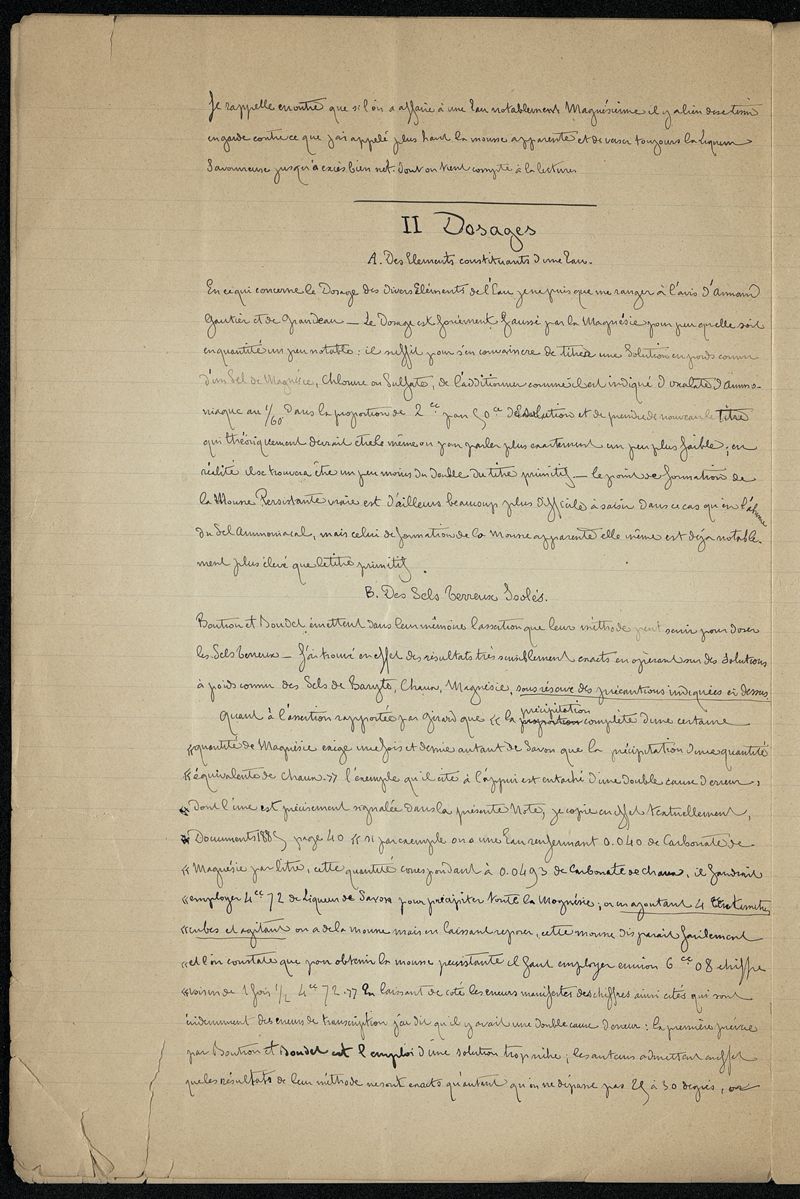 Je rappelle en outre que si l'on a affaire à une Eau notablement Magnésienne il y a lieu de se tenir
en garde contre ce que j'ai appelé plus haut la mousse apparente et de verser toujours la Liqueur
Savonneuse jusqu'à excès bien net. dont on tient compte à la lecture
II Dosages
A. Des Elements constituants d'une Eau.
En ce qui concerne le Dosage des divers Eléments de l'Eau je ne puis que me ranger à l'avis d'Armand
Gautier et de Grandeau — Le Dosage est forcément faussé par la Magnésie pour peu qu'elle soit
en quantité un peu notable : il suffit pour s'en convaincre de titrer une Solution en poids connu
d'un Sel de Magnésie, Chlorure ou Sulfate, de l'additionner comme il est indiqué d'oxalate d'Ammo-
niaque au 1/60 dans la proportion de 2 cc pour 50 cc de Solution et de prendre de nouveau le Titre
qui théoriquement devrait être le même ou pour parler plus exactement un peu plus faible, en
réalité il se trouvera être un peu moins du double du titre primitif — le point de formation de
la Mousse Persistante vraie est d'ailleurs beaucoup plus difficile à saisir dans ce cas qu'en l'absence
du Sel Ammoniacal, mais celui de formation de la Mousse apparente elle même est déjà notable-
ment plus élevé que le titre primitif.
B. Des Sels Terreux Isolés.
Boutron et Boudet émettent dans leur mémoire l'assertion que leur méthode peut servir pour doser
les Sels terreux — J'ai trouvé en effet des résultats très sensiblement exacts en opérant sur des solutions
à poids connu des Sels de Baryte, Chaux, Magnésie, sous réserve des précautions indiquées ci dessus
Quant à l'assertion rapportée par Girard que « la précipitation complète d'une certaine
« quantité de Magnésie exige une fois et demie autant de Savon que la précipitation d'une quantité
« équivalente de chaux » l'exemple qu'il cite à l'appui est entaché d'une double cause d'erreur,
Dont l'une est précisement signalée dans la présente Note, je copie en effet textuellement,
Documents 1885 page 40 « si par exemple on a une Eau renfermant 0.040 de Carbonate de
« Magnésie par litre, cette quantité correspondant à 0.0493 de Carbonate de chaux, il faudrait
« employer 4 cc 72 de Liqueur de Savon pour précipiter toute la Magnésie ; or en ajoutant 4 centimètres
« cubes et agitant on a de la mousse mais en laissant reposer, cette mousse disparait facilement
« et l'on constate que pour obtenir la mousse persistante il faut employer environ 6 cc 08 chiffre
« voisin de 1 fois 1/2 4 cc 72 » En laissant de coté les erreurs manifestes des chiffres ainsi cités qui sont
évidemment des erreurs de transcription j'ai dit qu'il y avait une double cause d'erreur : la première prévue
par Boutron et Boudet est l'emploi d'une solution trop riche ; les auteurs admettent en effet
que les résultats de leur méthode ne sont exacts qu'autant qu'on ne dépasse pas 25 à 30 degrés, or